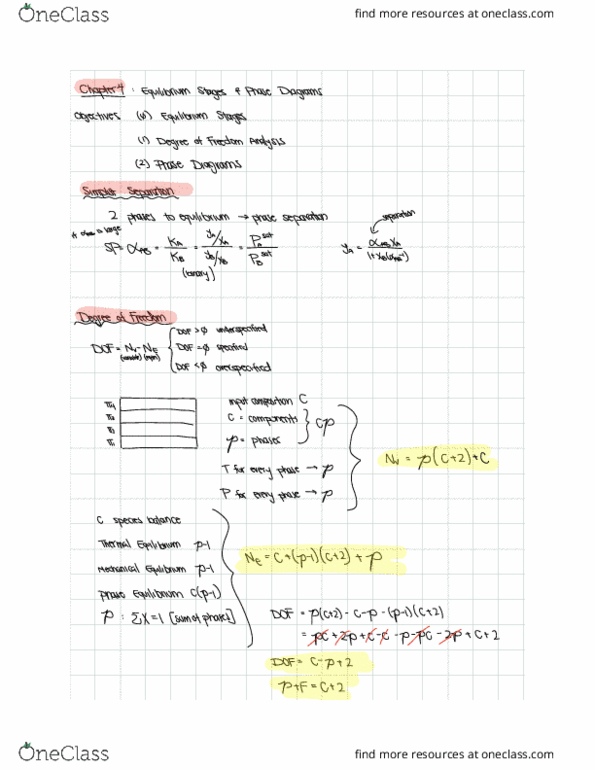 OneClass
find more resources at oneclass.com
Chapter 4 : Equilibrium Stages & Phase Diagrams
Objectives (0) Equilibrium Stages
(1) Degree of Freedom Analysis
(2) Phase Diagrams
Simplest Separation
2 phases to equilibrium → phase separation
is large
SP = αAB = KA/KB = (yA/xA)/(yB/xB) = PA^sat/PB^sat
(binary)
separation
yA = αAB xA/(1+xA(αAB-1))
Degree of Freedom
DOF = Nv - NE
(variable) (eqns)
DOF > ∅ underspecified
DOF = ∅ specified
DOF < ∅ overspecified
π4
π3
π2
π1
input composition C
C = components
p = phases
Cp
T for every phase → p
P for every phase → p
Nv = p(C+2)+C
C species balance
Thermal Equilibrium p-1
Mechanical Equilibrium p-1
phase Equilibrium C(p-1)
p : ΣX=1 [sum of phases]
NE = C+(p-1)(C+2)+p
DOF = p(C+2) - C - p - (p-1)(C+2)
= pC + 2p + C - C - p - pC - 2p + C + 2
DOF = C-p+2
p+F = C+2
OneClass
find more resources at oneclass.com